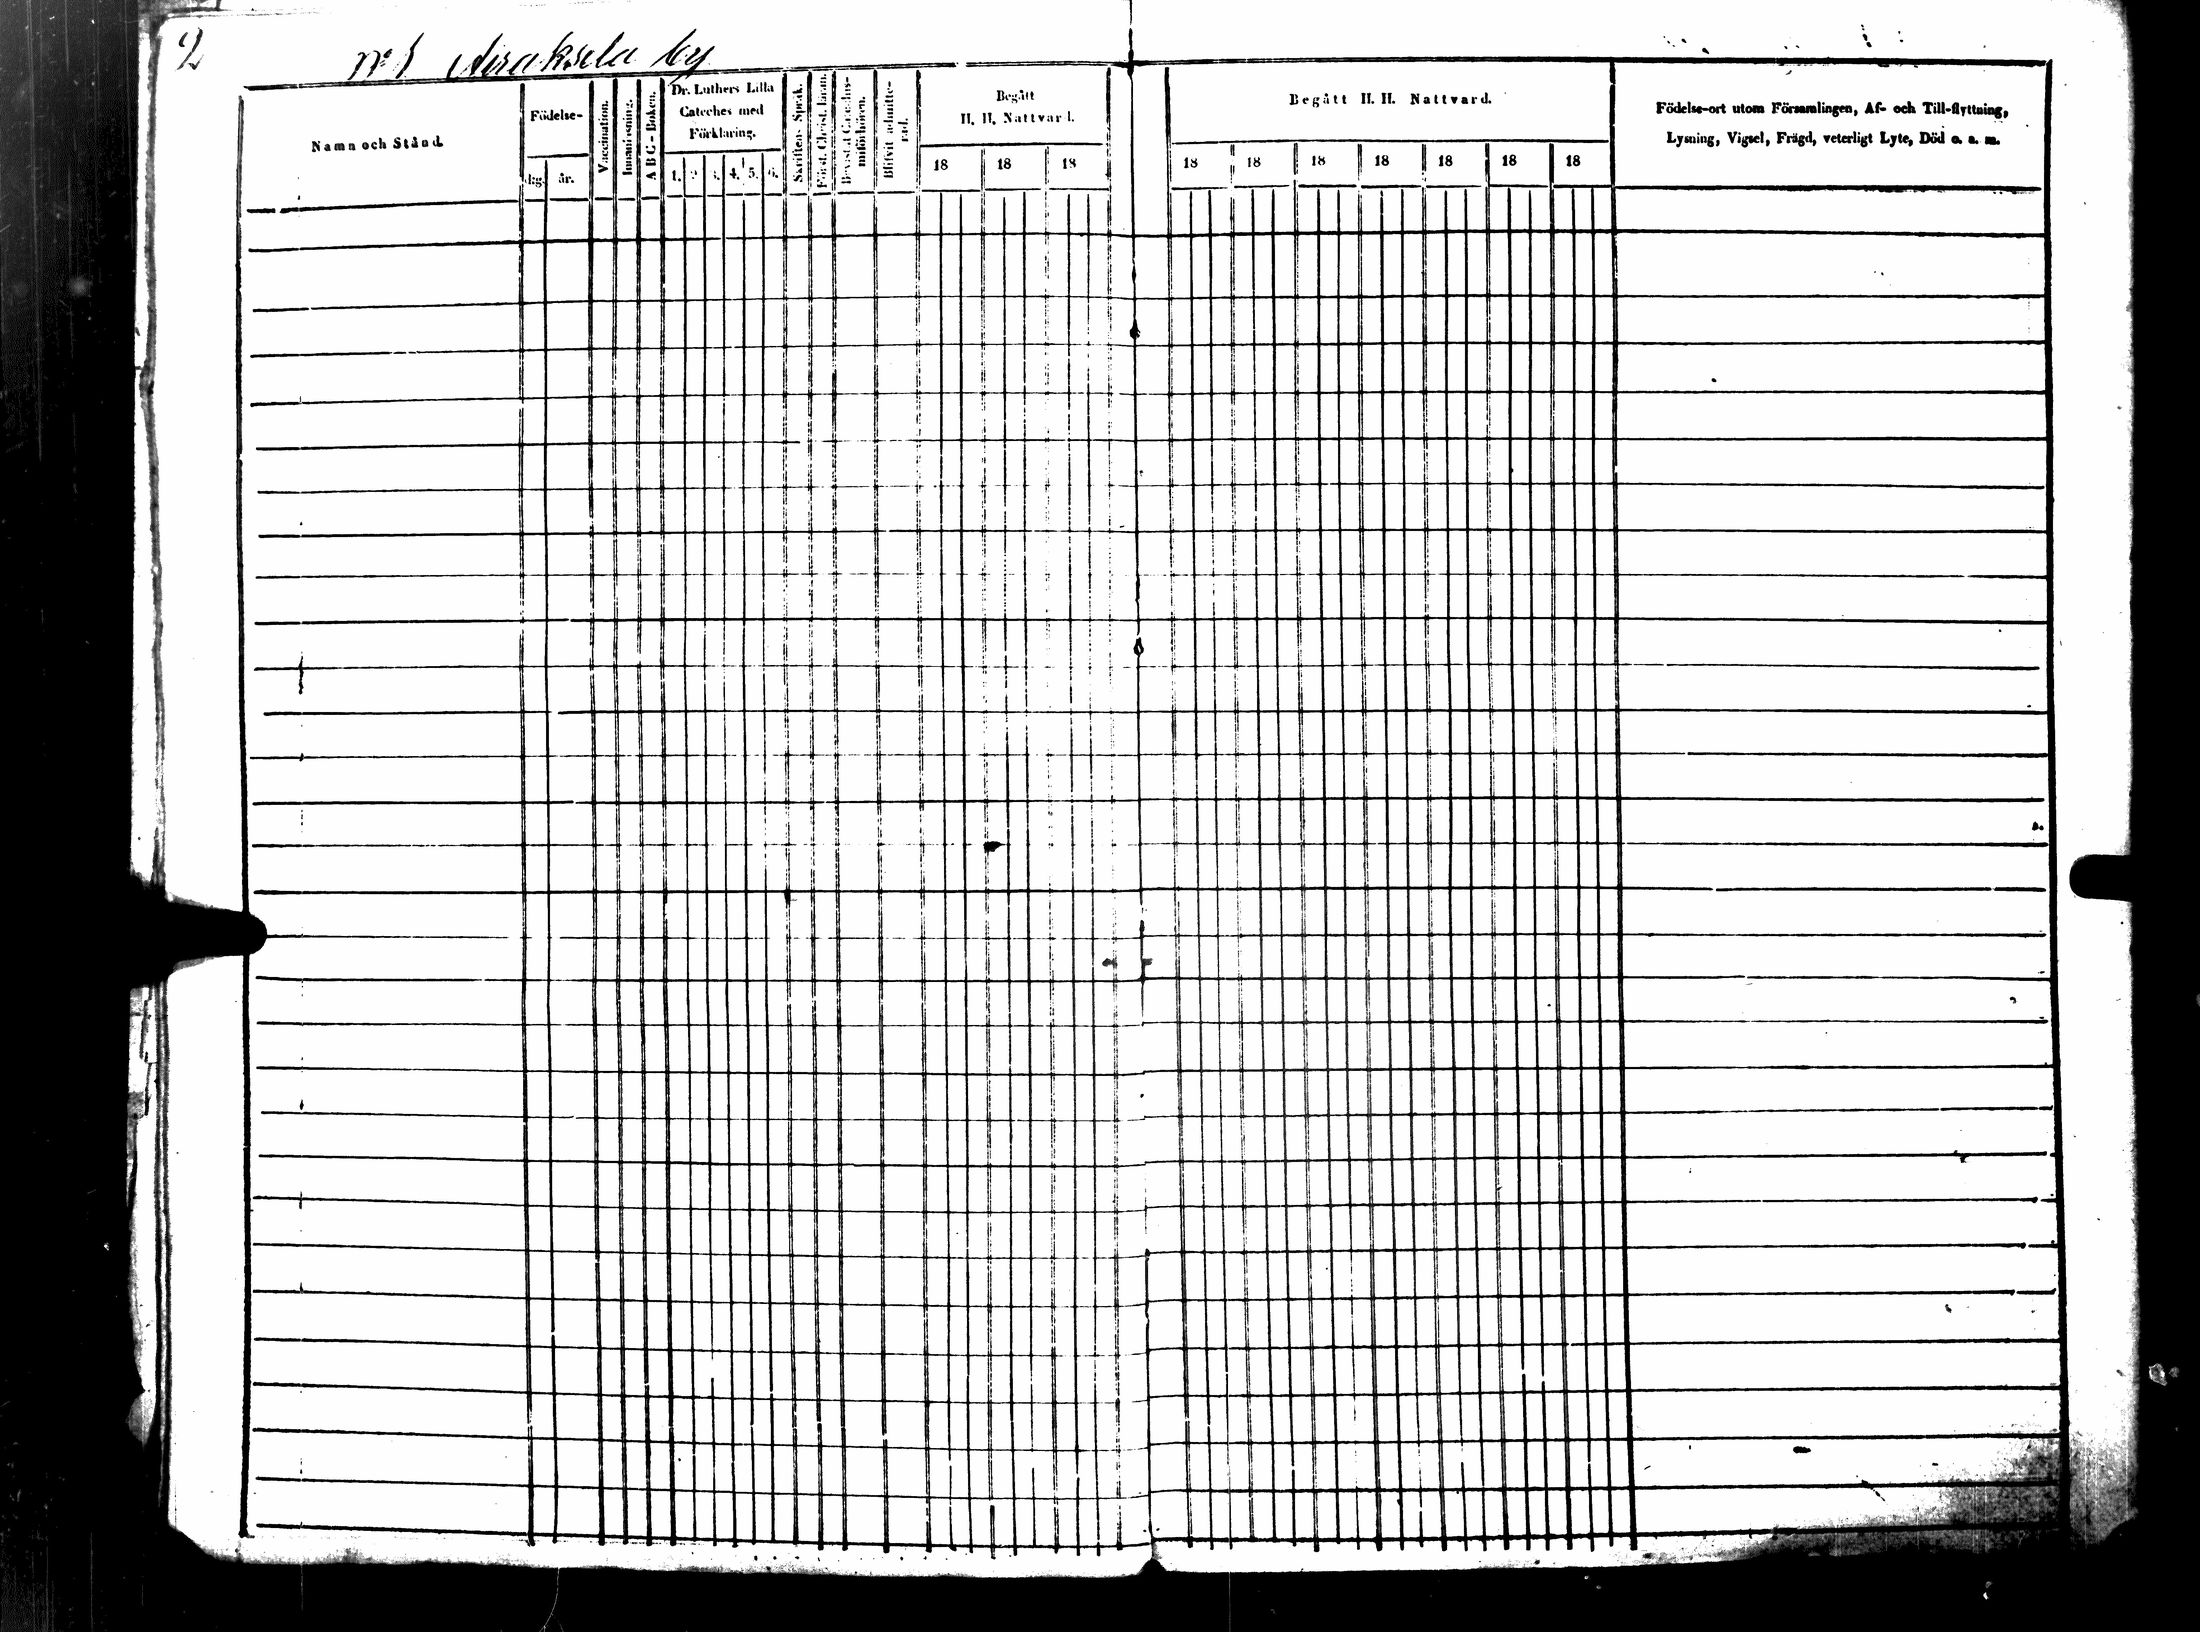 2
No 1 Airaksela by
Namn och Stånd.
Födelse-
dg.
år.
Vaccination.
Innanläsning.
A B C - Boken.
Dr. Luthers Lilla
Cateches med
Förklaring.
1. 2 3. 4. 5. 6.
Skriftens Språk.
Först. Christ. läran.
Bevistat Cateches-
miförhören.
Blifvit admitte-
rad.
Begått
H. H. Nattvard.
18 18 18
Begått H. H. Nattvard.
18 18 18 18 18 18 18
Födelse-ort utom Församlingen, Af- och Till-flyttning,
Lysning, Vigsel, Frägd, veterligt Lyte, Död o. s. m.